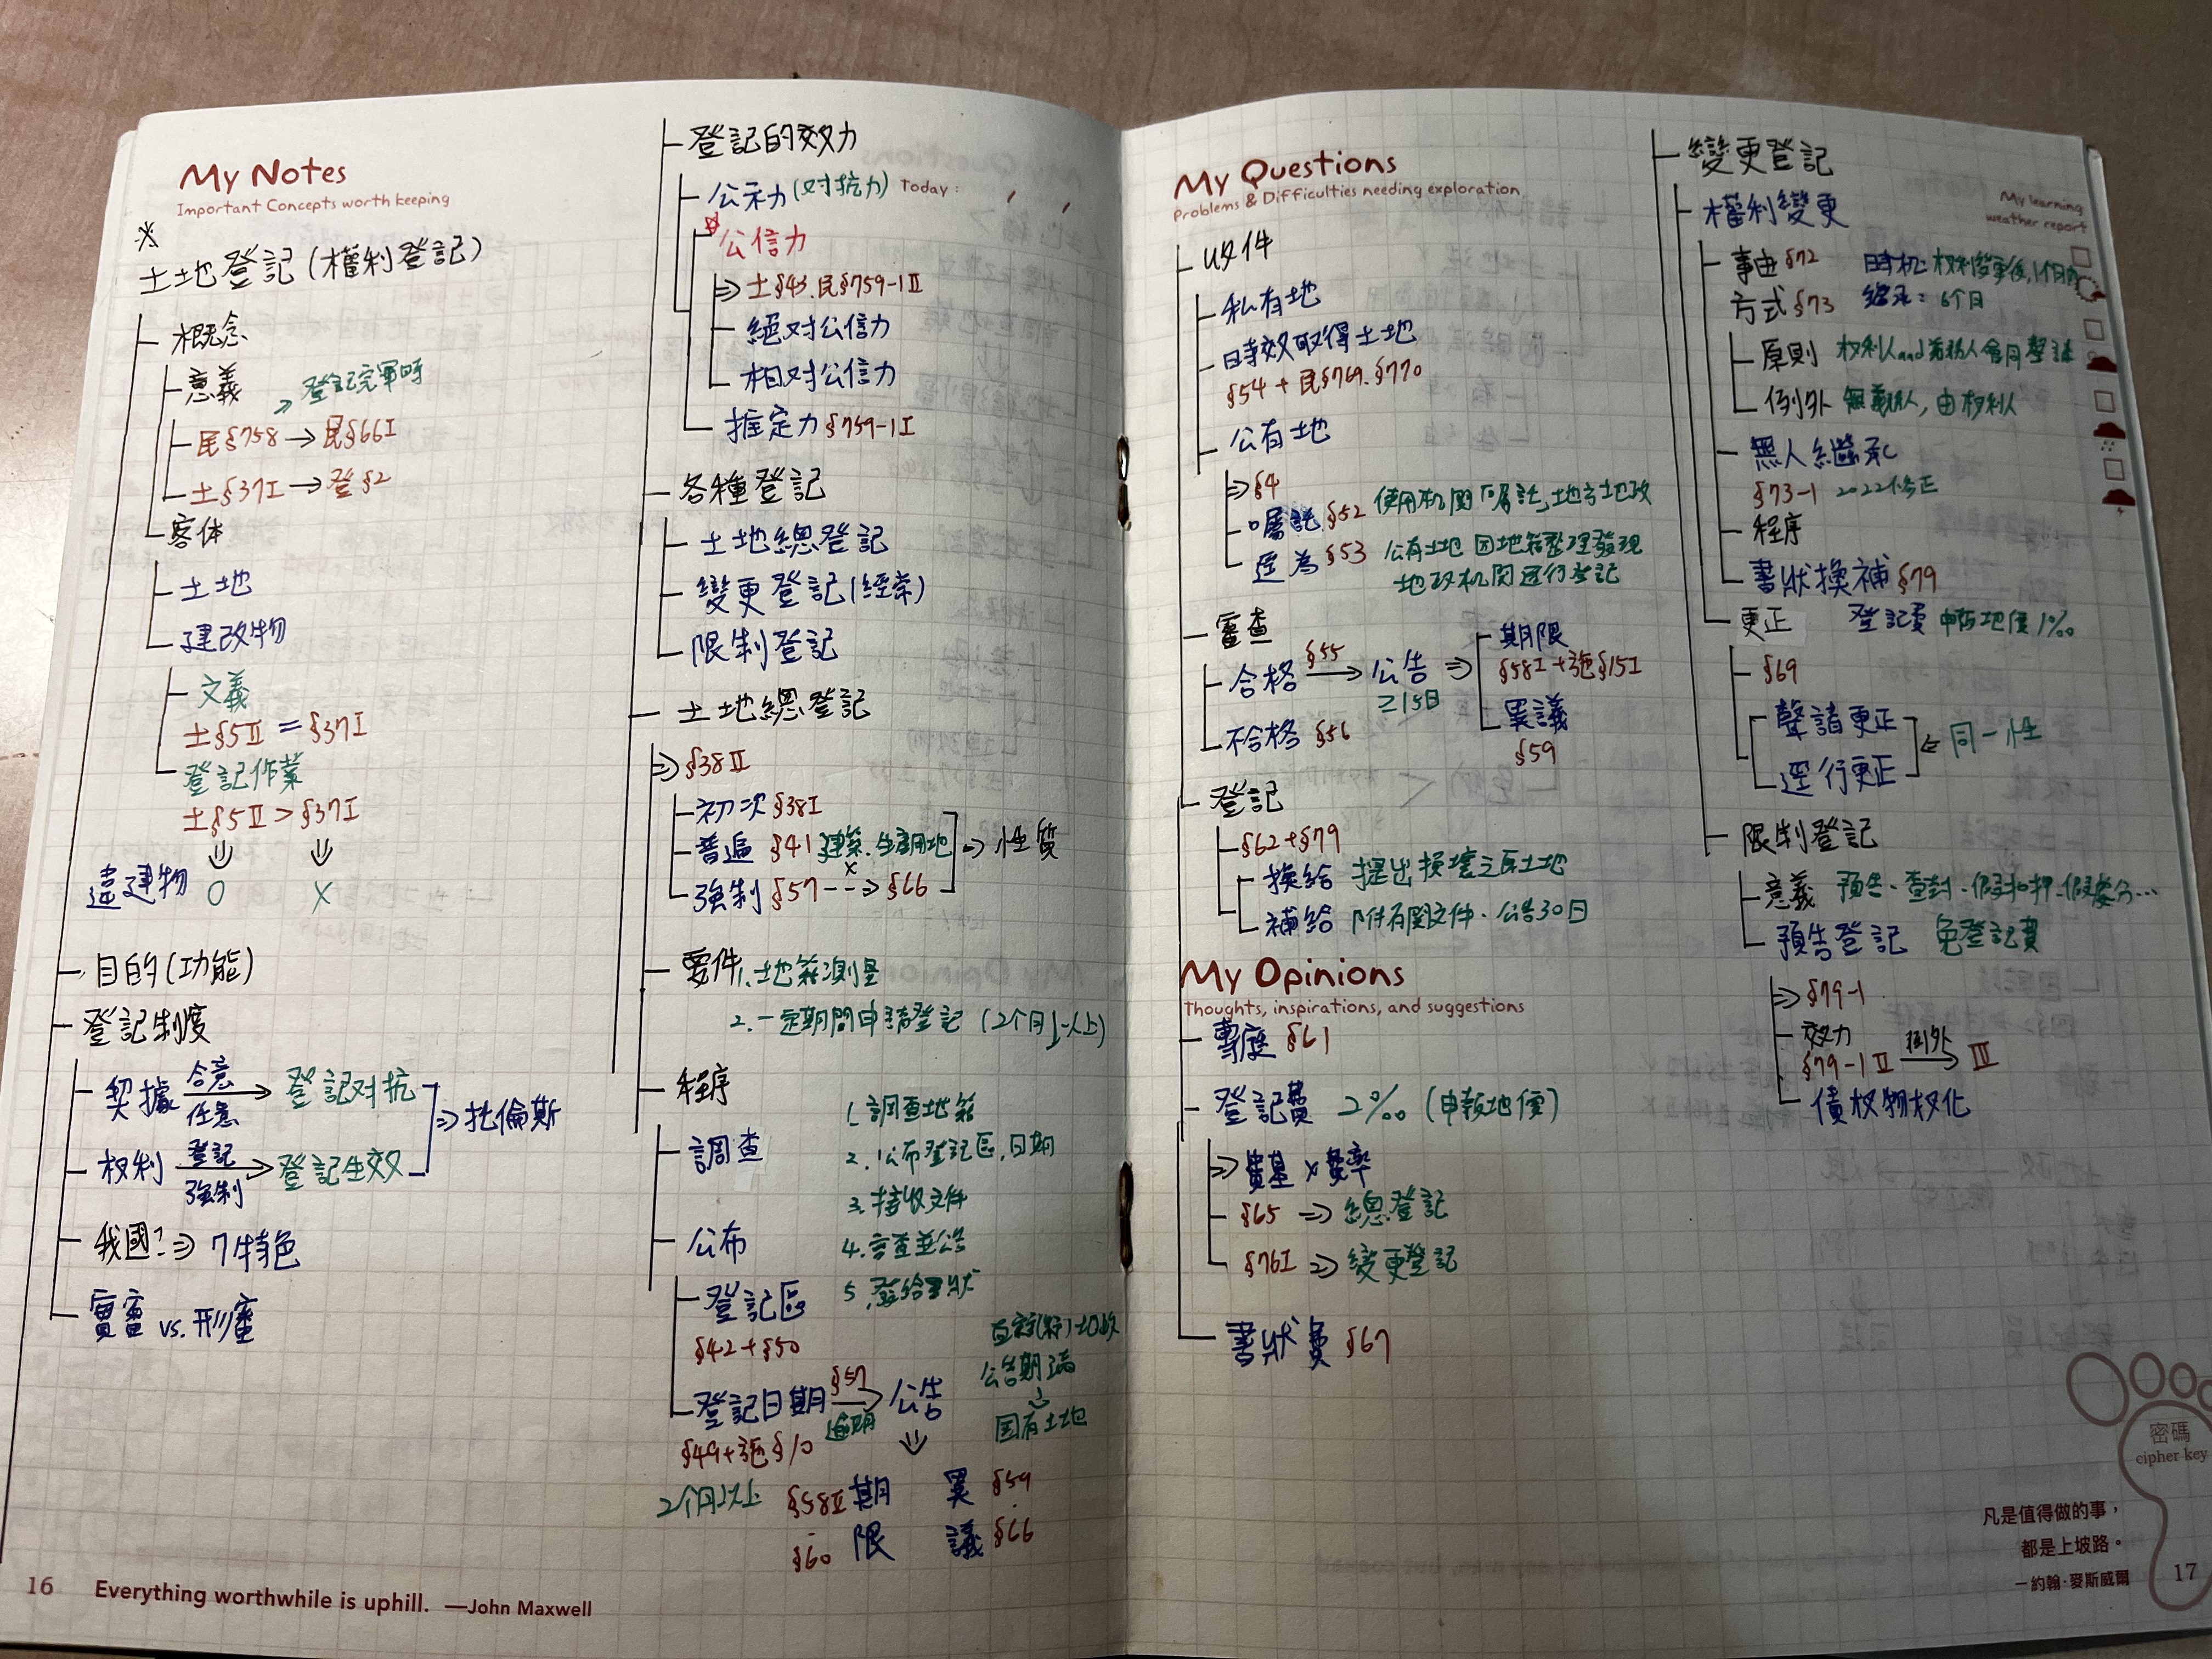 My Notes
Important Concepts worth keeping
※
土地登記(權利登記)
概念
意義
→登記完畢時
民§758→民§66I
土§37I→登§2
客体
土地
建改物
文義
土§5Ⅱ=§37I
登記作業
土§5Ⅱ>§37I
違建物 O X
目的(功能)
登記制度
契據 合意 任意 → 登記对抗
权利 登記 強制 → 登記生效
⇒托倫斯
我國?⇒7特色
實審 vs. 形審
登記的效力
公示力(对抗力)
Today:
公信力
⇒土§43.民§759-1Ⅱ
絕对公信力
相对公信力
推定力§759-1I
各種登記
土地總登記
變更登記(經常)
限制登記
土地總登記
⇒§38Ⅱ
初次§38I
普遍 §41 建築.生產用地
強制 §57--→§66
x
⇒性質
要件1.土地籍測量
2.一定期間申請登記(2个月以上)
程序
調查
公布
1.調查地籍
2.公布登記區,日期
3.接收文件
4.審查並公告
5.發給書狀
登記區
§42+§50
登記日期 §57 逾期 → 公告
§49+施§10
2个月以上
§58Ⅱ 期限
§60
異議 §59
§66
公告期滿
国有土地
16 Everything worthwhile is uphill. —John Maxwell
My Questions
Problems & Difficulties needing exploration
收件
私有地
時效取得土地
§54+民§769.§770
公有地
⇒§4
囑託§52 使用机關囑託土地方地政
逕為§53 公有土地 因地籍整理發現
地政机関逕行登記
審查
合格 §55 → 公告 ⇒ 期限
≥15日
§58I+施§15I
異議
§59
不合格 §56
登記
§62+§79
換給 提出損壞之原土地
補給 附有関文件.公告30日
My Opinions
Thoughts, inspirations, and suggestions
專庭 §61
登記費 2‰(申報地價)
⇒費基x費率
§65⇒總登記
§76I⇒變更登記
書狀費 §67
變更登記
My learning
weather report
權利變更
事由§72 時机:权利變更後,1个月內
方式§73 繼承:6个月
原則 权利人and義務人會同聲請
例外 無義務人,由权利人
無人繼承
§73-1 2022修正
程序
書狀換補§79
更正 登記費 申報地價1‰
§69
聲請更正
逕行更正
⇐同一性
限制登記
意義 預告.查封.假扣押.假處分...
預告登記 免登記費
⇒§79-1
效力
§79-1Ⅱ 例外 → Ⅲ
債权物权化
密碼
cipher key
凡是值得做的事,
都是上坡路。
—約翰·麥斯威爾
17